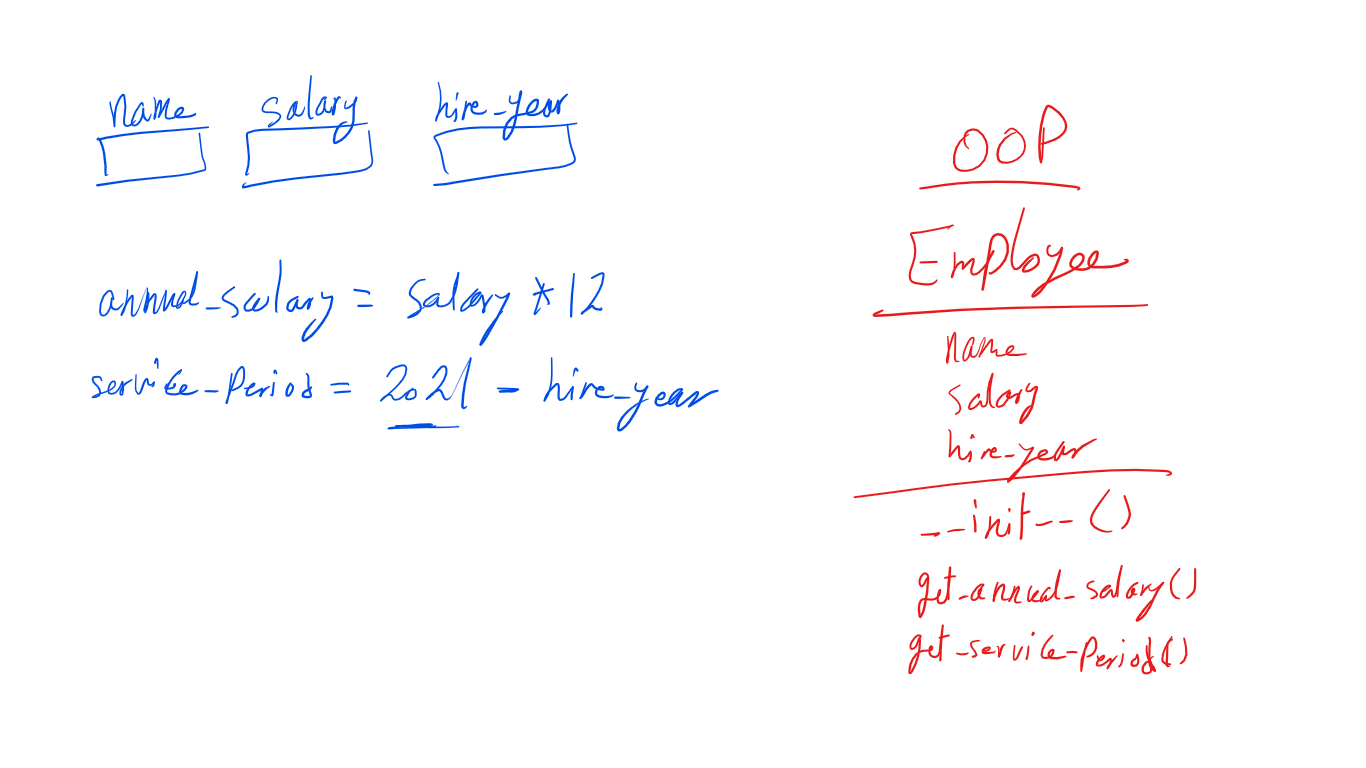 name salary hire_year
annual_salary = salary * 12
service_Period = 2021 - hire_year
OOP
Employee
name
salary
hire_year
__init__()
get_annual_salary()
get_service_Period()